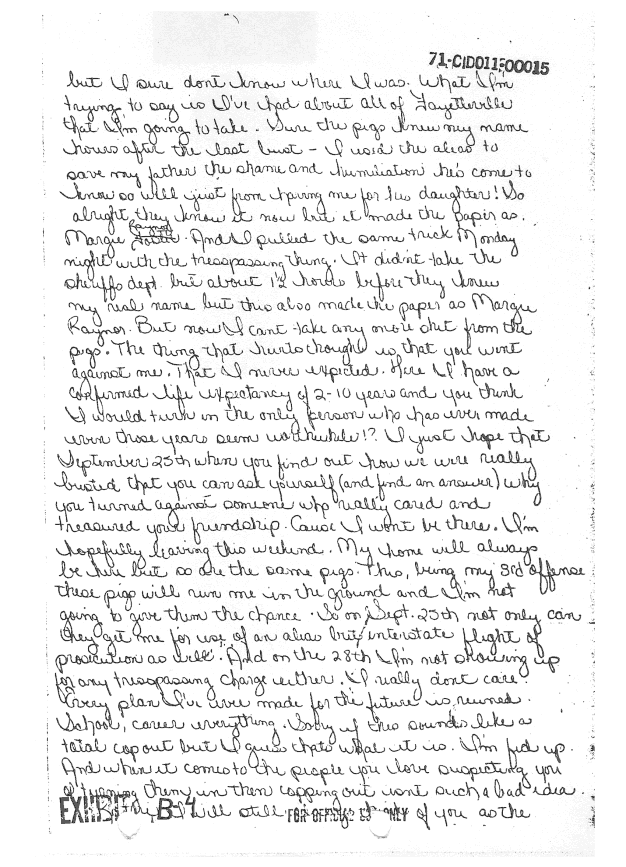 71-CID011-00015
but I sure dont know where I was. What I'm
trying to say is I've had about all of Fayetteville
that I'm going to take. Sure the pigs knew my name
hours after the last bust - I used the alias to
save my father the shame and humiliation he's come to
know so well just from having me for his daughter! So
alright they know it now but it made the paper as.
Margie Raynor. And I pulled the same trick Monday
night with the trespassing thing. It didn't take the
sheriffs dept. but about 1½ hours before they knew
my real name but this also made the paper as Margie
Raynor. But now I cant take any more shit from the
pigs. The thing that hurts though is that you went
against me. That I never expected. Here I have a
confirmed life expectancy of 2-10 years and you think
I would turn in the only person who has ever made
even those years seem worthwhile!? I just hope that
September 25th when you find out how we were really
busted that you can ask yourself (and find an answer) why
you turned against someone who really cared and
treasured your friendship. Cause I wont be there. I'm
hopefully leaving this weekend. My home will always
be here but so are the same pigs. This, being my 3rd offense
these pigs will run me in the ground and I'm not
going to give them the chance. So on Sept. 25th not only can
they get me for use of an alias but interstate flight of
prosecution as well. And on the 28th I'm not showing up
for any trespassing charge either. I really dont care.
Every plan I've ever made for the future is ruined.
School, career everything. Sorry if this sounds like a
total cop out but I guess thats what it is. I'm fed up.
And when it comes to the people you love suspecting you
of turning them in then copping out isnt such a bad idea.
I will still of you as the
EXHIBIT B-4
FOR OFFICIAL USE ONLY